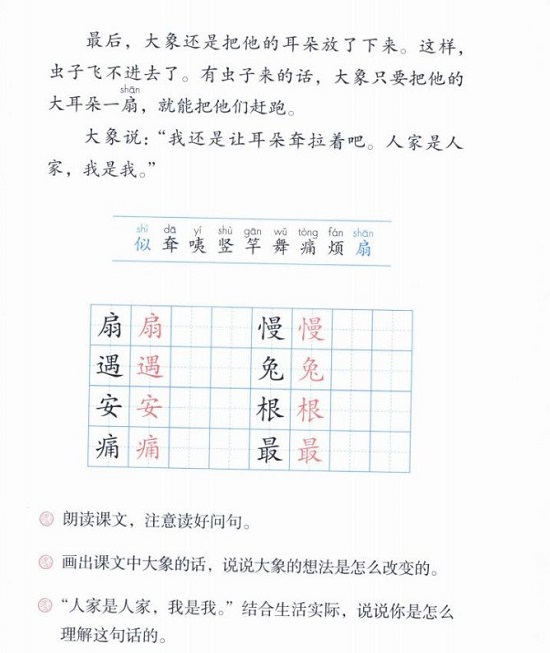 最后，大象还是把他的耳朵放了下来。这样，
虫子飞不进去了。有虫子来的话，大象只要把他的
shān
大耳朵一扇，就能把他们赶跑。
大象说：“我还是让耳朵耷拉着吧。人家是人
家，我是我。”
shì dā yí shù gān wǔ tòng fán shān
似 耷 咦 竖 竿 舞 痛 烦 扇
扇 扇 慢 慢
遇 遇 兔 兔
安 安 根 根
痛 痛 最 最
朗读课文，注意读好问句。
画出课文中大象的话，说说大象的想法是怎么改变的。
“人家是人家，我是我。”结合生活实际，说说你是怎么
理解这句话的。